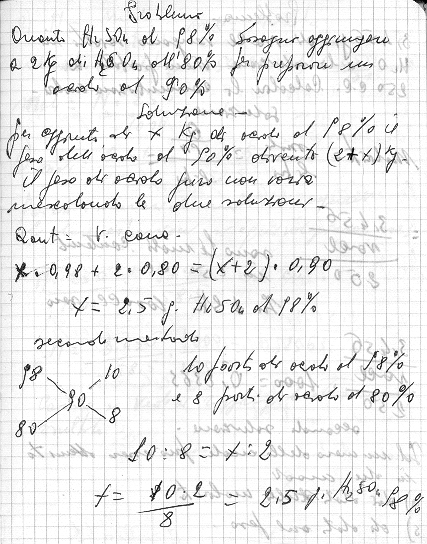 Problema
Quanto H2SO4 al 98% bisogna aggiungere
a 2 Kg di H2SO4 all'80% per preparare un
acido al 90%
Soluzione -
per aggiunta di x Kg di acido al 98% il
peso dell'acido al 90% diventa (2+x) Kg -
il peso di acido puro non varia
mescolando le due soluzioni -
Quant = V. conc -
x · 0,98 + 2 · 0,80 = (x+2) · 0,90
x = 2,5 g. H2SO4 al 98%
secondo metodo
98 10
90
80 8
10 parti di acido al 98%
e 8 parti di acido al 80%
10 : 8 = x : 2
x = 10 · 2 / 8 = 2,5 g. H2SO4 98%